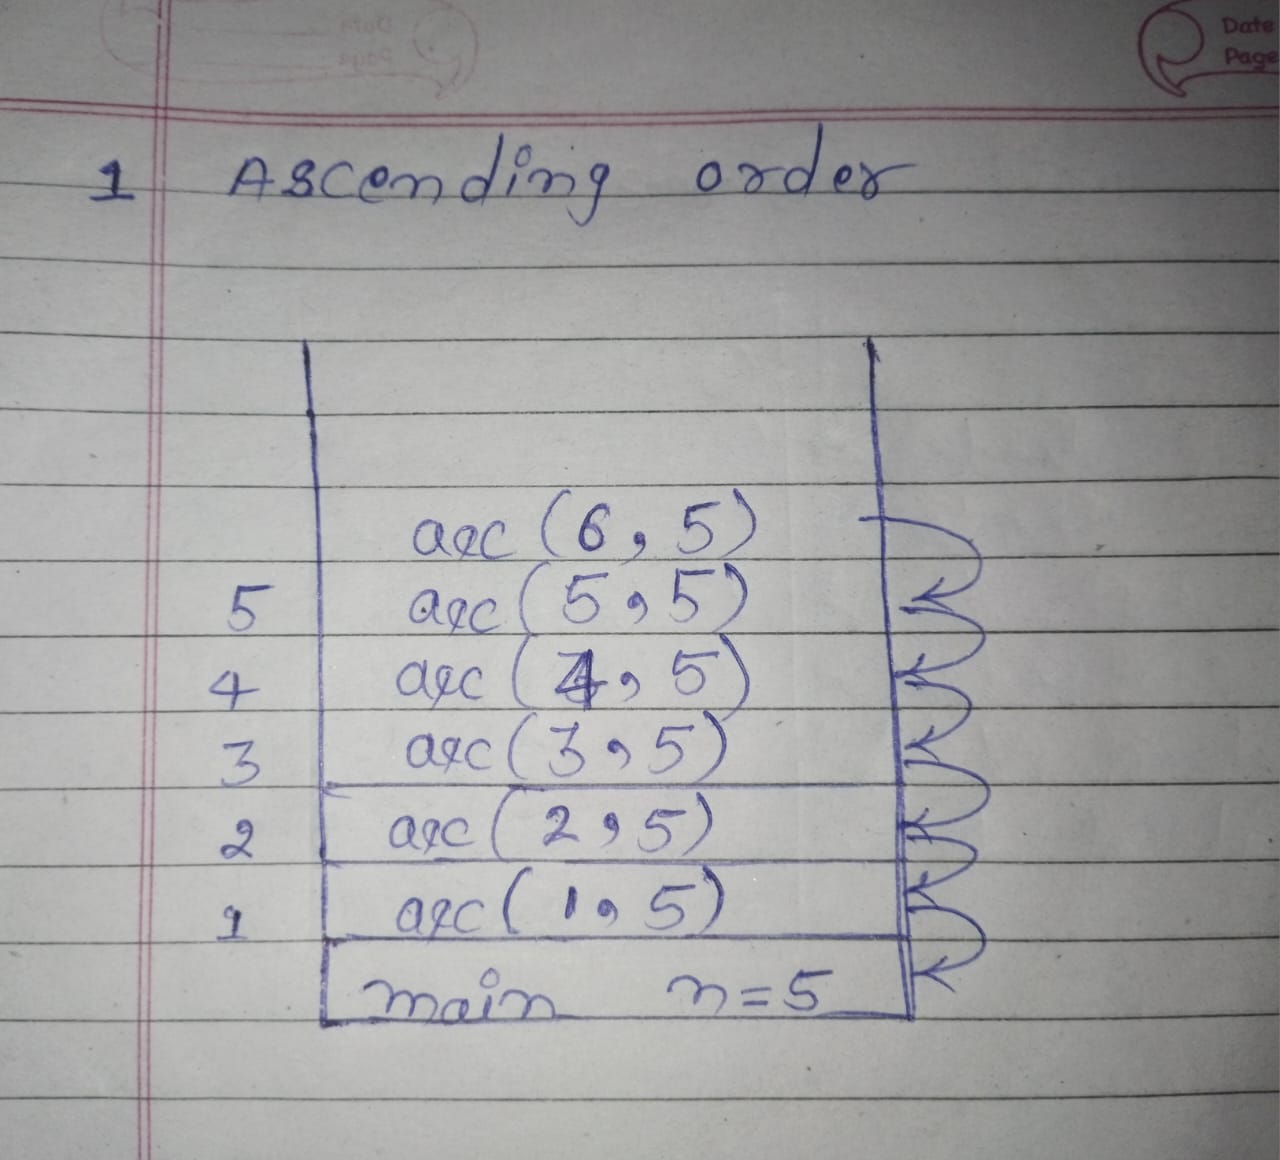 Date
Page
1 Ascending order
asc (6, 5)
5 asc (5, 5)
4 asc (4, 5)
3 asc (3, 5)
2 asc (2, 5)
1 asc (1, 5)
main n=5